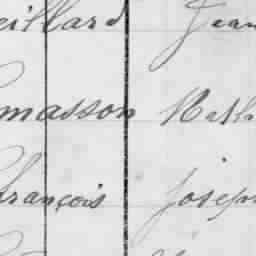 eillard Jean
masson Math
françois Joseph